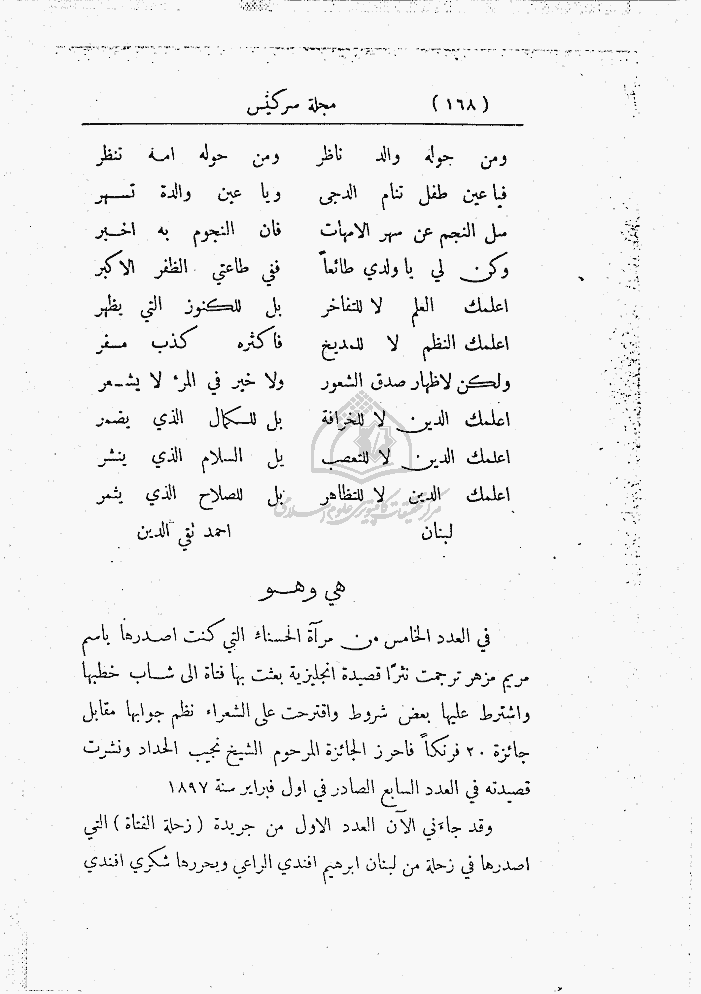 (١٦٨) مجلة سركيس
ومن حوله والد ناظر ومن حوله امه تنظر
فيا عين طفل تنام الدجى ويا عين والدة تسهر
سل النجم عن سهر الامهات فان النجوم به اخبر
وكن لي يا ولدي طائعاً ففي طاعتي الظفر الاكبر
اعلمك العلم لا للتفاخر بل للكنوز التي يظهر
اعلمك النظم لا للمديح فاكثره كذب مسفر
ولكن لاظهار صدق الشعور ولا خير في المرء لا يشعر
اعلمك الدين لا للخرافة بل للكمال الذي يضمر
اعلمك الدين لا للتعصب بل السلام الذي ينشر
اعلمك الدين لا للتظاهر بل للصلاح الذي يثمر
لبنان احمد تقي الدين
هي وهو
في العدد الخامس من مرآة الحسناء التي كنت اصدرها باسم
مريم مزهر ترجمت نثرًا قصيدة انجليزية بعثت بها فتاة الى شاب خطبها
واشترط عليها بعض شروط واقترحت على الشعراء نظم جوابها مقابل
جائزة ٢٠ فرنكاً فاحرز الجائزة المرحوم الشيخ نجيب الحداد ونشرت
قصيدته في العدد السابع الصادر في اول فبراير سنة ١٨٩٧
وقد جاءني الآن العدد الاول من جريدة (زحلة الفتاة) التي
اصدرها في زحلة من لبنان ابرهيم افندي الراعي ويحررها شكري افندي
مركز تحقيقات كامپيوتري علوم اسلامي